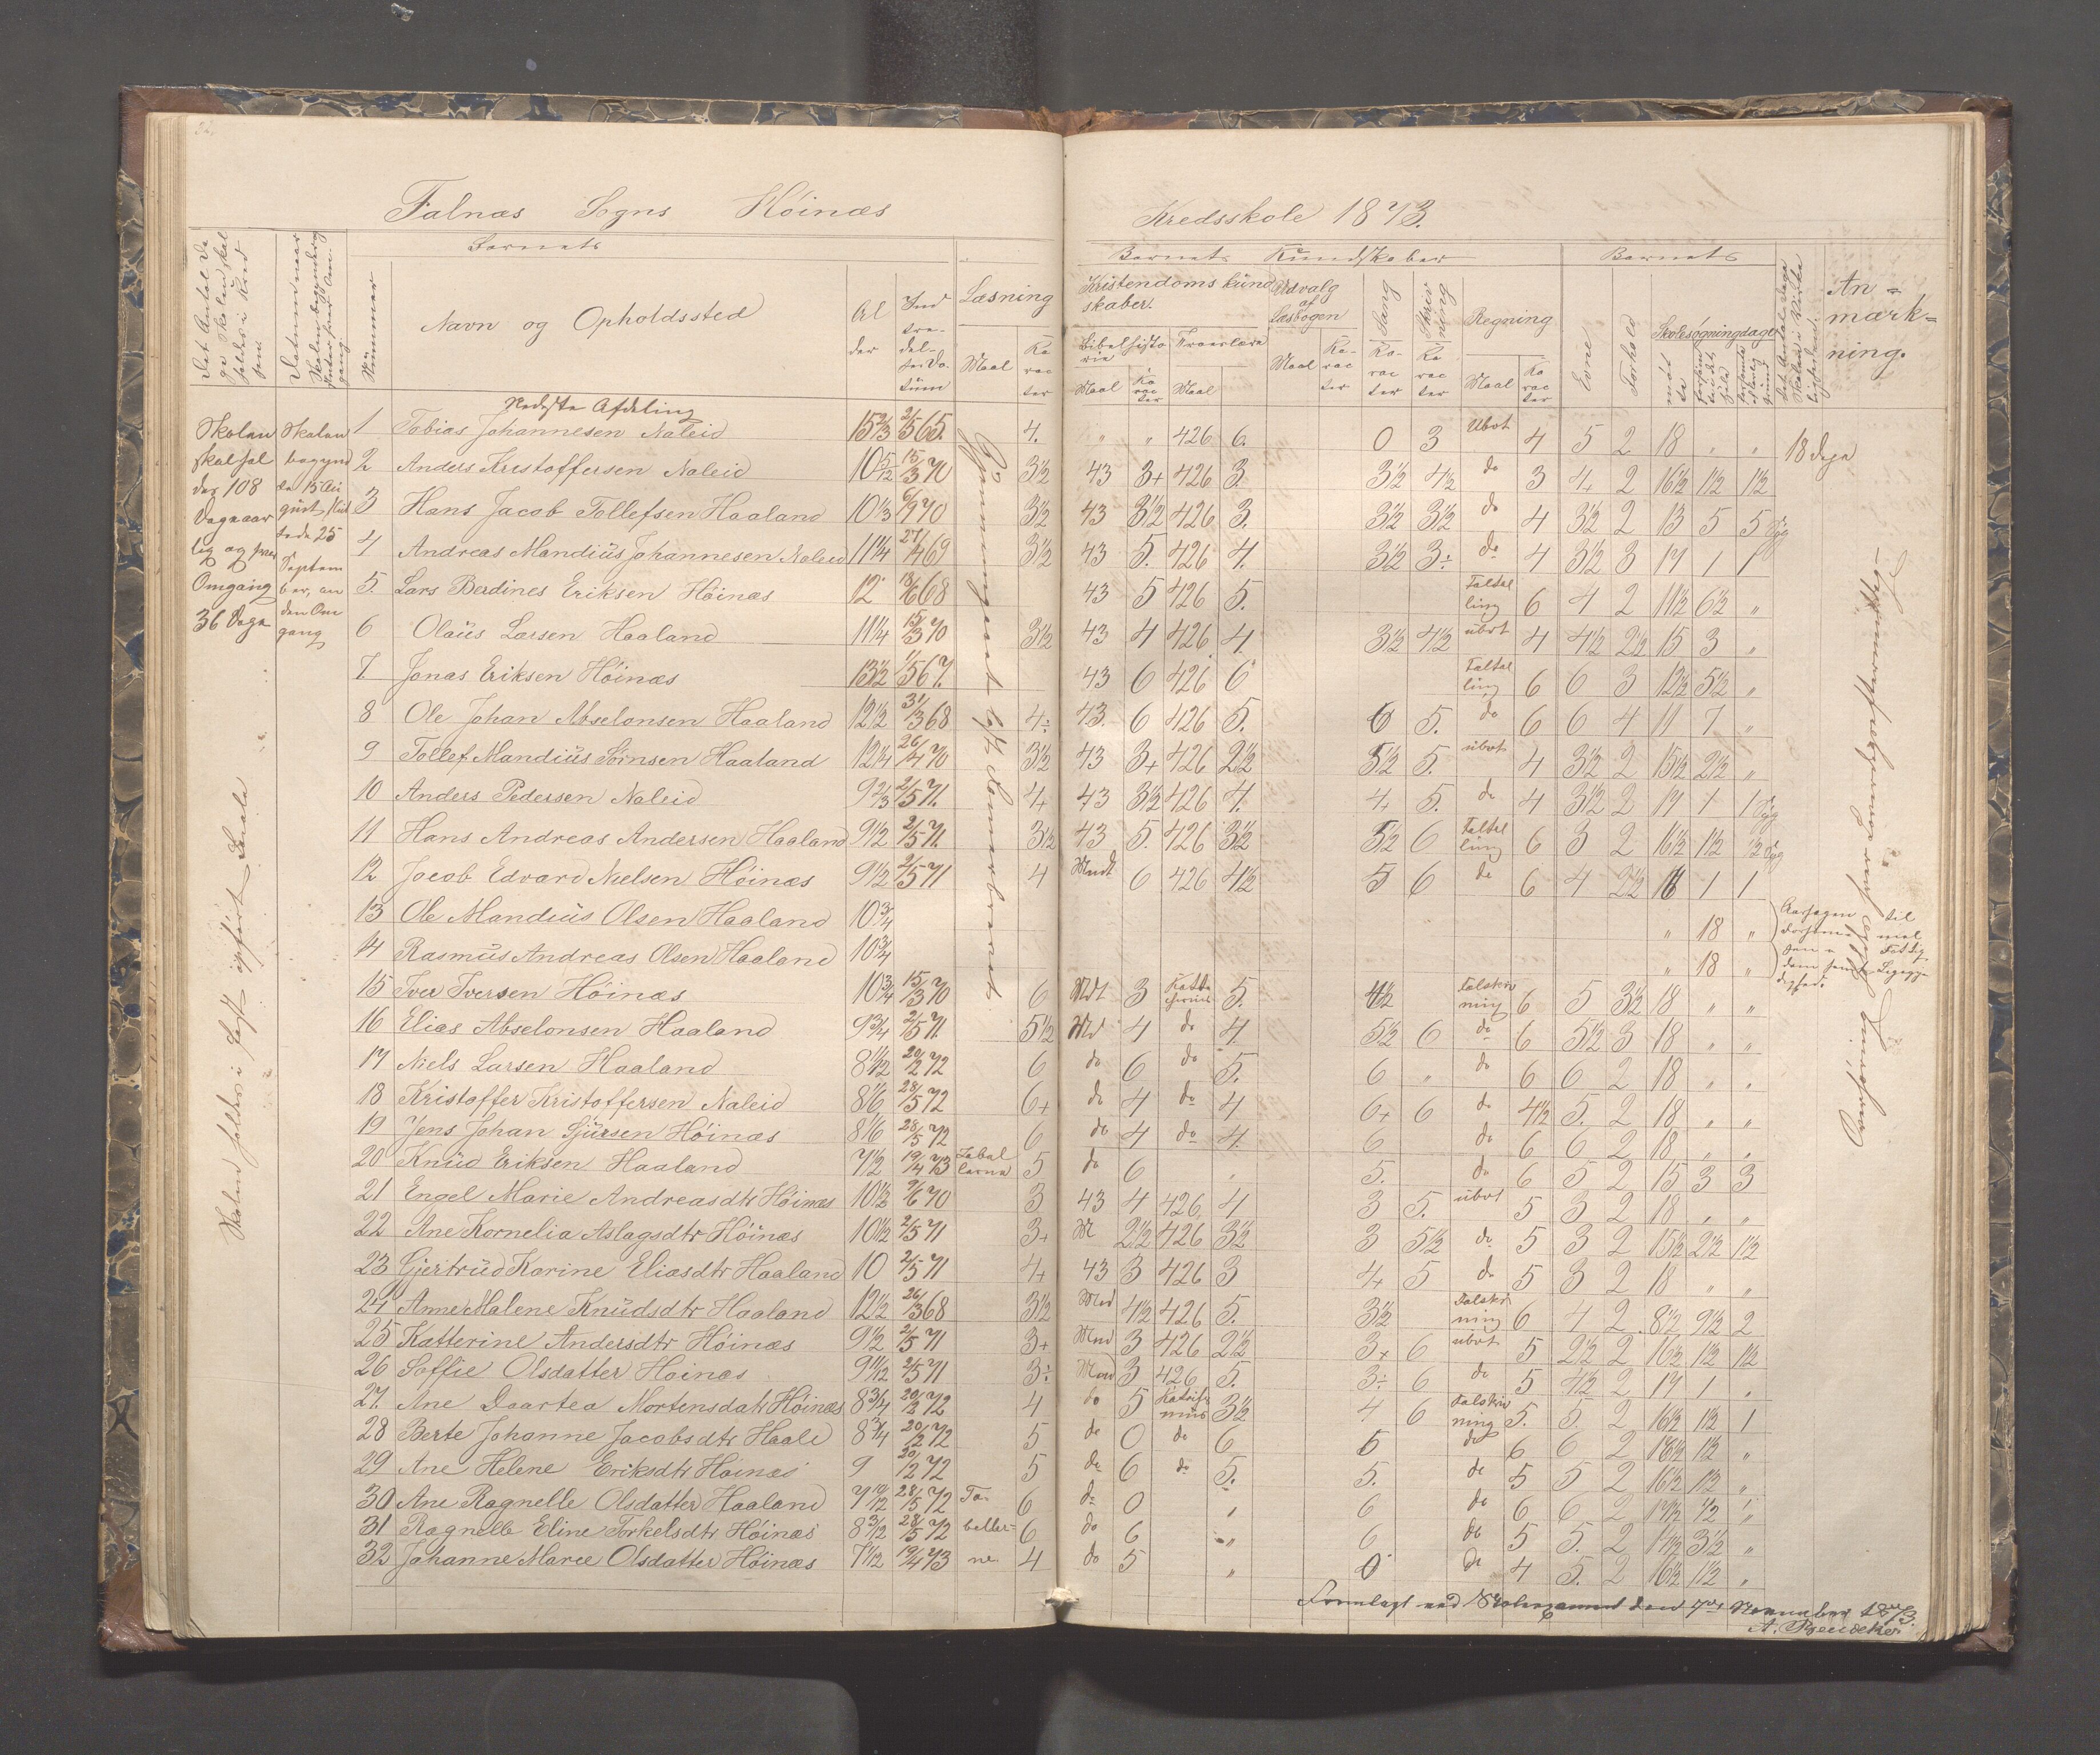 Falnæs Sogns Höinæs Kredsskole 1873.
Barnets
Barnets Kundskaber
Barnets
Nummer
Navn og Opholdssted
Al der
Ind træ del ses Da tum
Læsning
Maal
Ka rac ter
Kristendoms kund skaber.
Bibelhisto rie
Troeslære
Maal
Ka rac ter
Maal
Udvalg af Læsbogen
Maal
Ka rac ter
Sang
Ka rac ter
Skriv ning
Ka rac ter
Regning
Maal
Ka rac ter
Evne
Forhold
Skolesøgningdage
mødt
An = mærk = ning.
Nedeste Afdeling
Skolen skal hol des 108 Dage aar lig og hver Omgang 36 Dage
Skolen begynd te 15 Au gust, slut tede 25 Septem ber, en den Om gang
1 Tobias Johannesen Naleid 15 2/3 2/5 65. 4. " " 426 6. 0 3 Ubst 4 5 2 18 " " 18 dage
2 Anders Kristoffersen Naleid 10 5/12 15/3 70 3 1/2 43 3+ 426 3. 3 1/2 4 1/2 do 3 4 2 16 1/2 1 1/2 1 1/2
3 Hans Jacob Tollefsen Haaland 10 1/3 6/9 70 3 1/2 43 3 1/2 426 3. 3 1/2 3 1/2 do 4 3 1/2 2 13 5 5 Syg
4 Andreas Mandius Johannesen Naleid 11 1/4 27/4 69 3 1/2 43 5. 426 4. 3 1/2 3÷ do 4 3 1/2 3 17 1 1
5. Lars Berdines Eriksen Höinæs 12 18/6 68 43 5 426 5. Taltel ling 6 4 2 11 1/2 6 1/2 "
6 Olaus Larsen Haaland 11 1/4 15/3 70 3 1/2 43 4 426 4. 3 1/2 4 1/2 ubst 4 4 1/2 2 1/2 15 3 "
7. Jonas Eriksen Höinæs 13 1/2 1/5 67. 43 6 426 6 Taltel ling 6 6 3 12 1/2 5 1/2 "
8 Ole Johan Abselonsen Haaland 12 1/2 31/3 68 4÷ 43. 6 426 5. 6 5. do 6 6 4 11 7 "
9 Tollef Mandius Sörnsen Haaland 12 1/4 26/4 70 3 1/2 43 3+ 426 2 1/2 5 1/2 5. ubst 4 3 1/2 2 15 1/2 2 1/2 "
10 Anders Pedersen Naleid 9 2/3 2/5 71. 4+ 43 3 1/2 426 4. 4+ 5. do 4 3 1/2 2 17 1 1 Syg
11 Hans Andreas Andersen Haaland 9 1/2 2/5 71. 3 1/2 43 5. 426 3 1/2 5 1/2 6 Taltel ling 6 3 2 16 1/2 1 1/2 1/2 Syg
12 Jacob Edvard Nielsen Höinæs 9 1/2 2/5 71 4 Mndt 6 426 4 1/2 5 6 do 6 4 2 1/2 16 1 1
13 Ole Mandius Olsen Haaland 10 3/4 " 18 "
14 Rasmus Andreas Olsen Haaland 10 3/4 " 18 "
15 Iver Iversen Höinæs 10 3/4 15/3 70 6 Mdt 3 5. 4 1/2 Talskriv ning 6 5 3 1/2 18 " "
16 Elias Abselonsen Haaland 9 3/4 2/5 71. 5 1/2 Md 4 do 4. 5 1/2 6 do 6 5 1/2 3 18 " "
17 Niels Larsen Haaland 8 11/12 20/2 72 6 do 6 do 5. 6 " do 6 6 2 18 " "
18 Kristoffer Kristoffersen Naleid 8 1/6 28/5 72 6+ do 4 do 4 6+ 6 do 4 1/2 5. 2 18 " "
19 Jens Johan Sjursen Höinæs 8 1/6 28/5 72 6 do 4 do 4. 6 do 6 6 2 18 " "
20 Knud Eriksen Haaland 7 1/2 19/4 73 Tabel lerne 5 do 6 " 5. do 6 5 2 15 3 3
21 Engel Marie Andreasdtr Höinæs 10 1/2 9/6 70 3 43 4 426 4 3 5. ubst 5 3 2 18 " "
22 Ane Kornelia Aslagsdtr Höinæs 10 1/2 2/5 71 3+ M 2 1/2 426 3 1/2 3 5 1/2 do 5 3 2 15 1/2 2 1/2 1 1/2
23 Gjertrud Karine Eliasdtr Haaland 10 2/5 71 4+ 43 3 426 3 4+ 5 do 5 3 2 18 " "
24 Anne Malene Knudsdtr Haaland 12 1/2 26/3 68 3 1/2 Md 4 1/2 426 5. 3 1/2 Talskri ning 6 4 2 8 1/2 9 1/2 2
25 Katterine Andersdtr Höinæs 9 1/2 2/5 71 3+ Mnd 3 426 2 1/2 3+ 6 ubst 5 2 1/2 2 16 1/2 1 1/2 1 1/2
26 Soffie Olsdatter Höinæs 9 11/12 2/5 71 3÷ Mnd 3 426 5. 3÷ 6 do 5 4 1/2 2 17 1 "
27. Ane Daartea Mortensdatr Höinæs 8 3/4 20/2 72 4 do 5 3 1/2 4 6 Talskriv ning 5. 5. 2 16 1/2 1 1/2 1
28 Berte Johanne Jacobsdtr Haale 8 3/4 20/2 72 5 do 0 do 6 5 do 6 6 2 16 1/2 1 1/2 "
29 Ane Helene Eriksdtr Höinæs 9 20/2 72 5 do 6 do 5. 5. do 5 5 2 16 1/2 1 1/2 "
30 Ane Ragnelle Olsdatter Haaland 7 10/12 28/5 72 Ta- 6 do 0 " 6 do 6 6 2 17 1/2 1/2 "
31 Ragnelle Eline Torkelsdtr Höinæs 8 3/12 28/5 72 beller= 6 do 6 " 6 do 5 5. 2 14 1/2 3 1/2 "
32 Johanne Marie Olsdatter Höinæs 7 1/12 19/4 73 ne. 4 do 5 " 6 do 4 5. 2 16 1/2 1 1/2 "
Gjennemgaaet
Skolen holdes i
Aarsagen til
Fremlagt ved Skoleexamen den 7de November 1873.